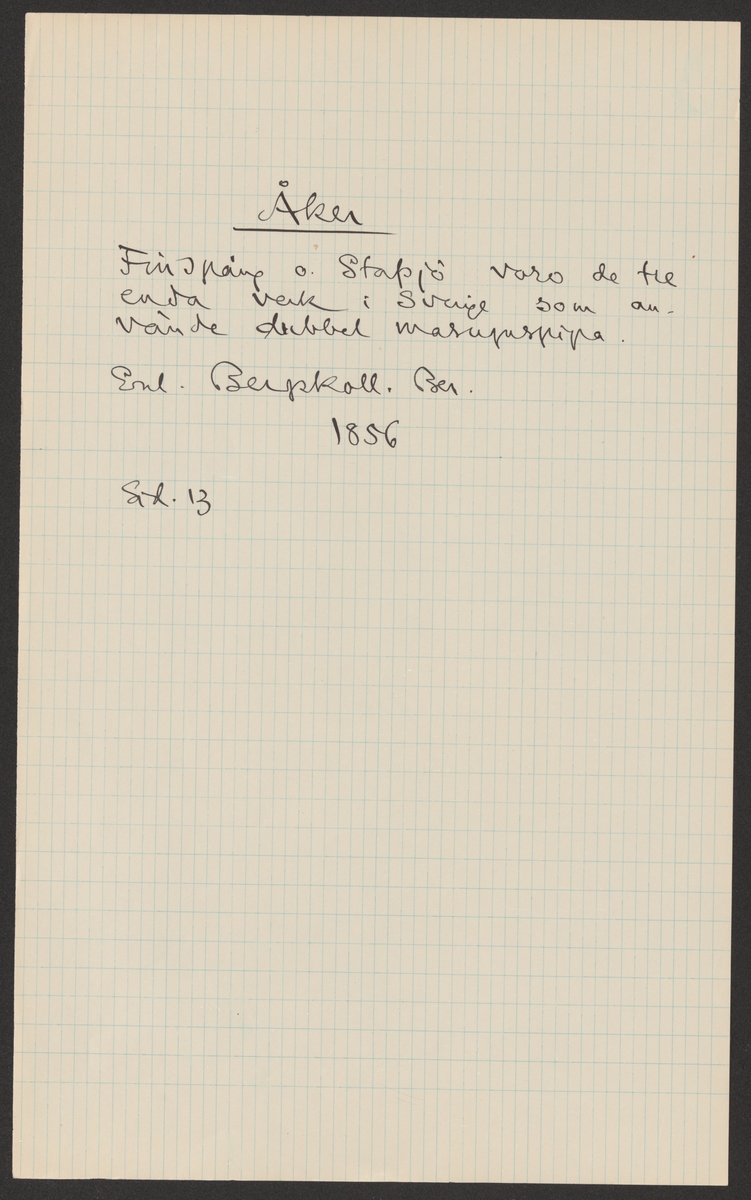 Åker
Finspång o. Stafsjö voro de tre
enda verk i Sverige som an-
vände dubbel masugnspipa.
Enl. Bergskoll. Ber.
1856
Sid. 13